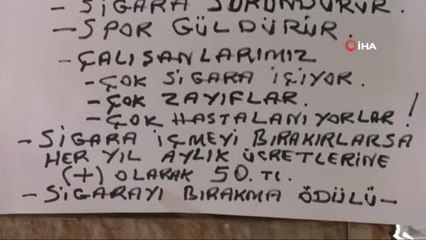 - SİGARA SÜRÜNDÜRÜR.
- SPOR GÜLDÜRÜR.
- ÇALIŞANLARIMIZ
- ÇOK SİGARA İÇİYOR.
- ÇOK ZAYIFLAR.
- ÇOK HASTALANIYORLAR!
- SİGARA İÇMEYİ BIRAKIRLARSA
HER YIL AYLIK ÜCRETLERİNE
(+) OLARAK 50.TL.
- SİGARAYI BIRAKMA ÖDÜLÜ -
İHA